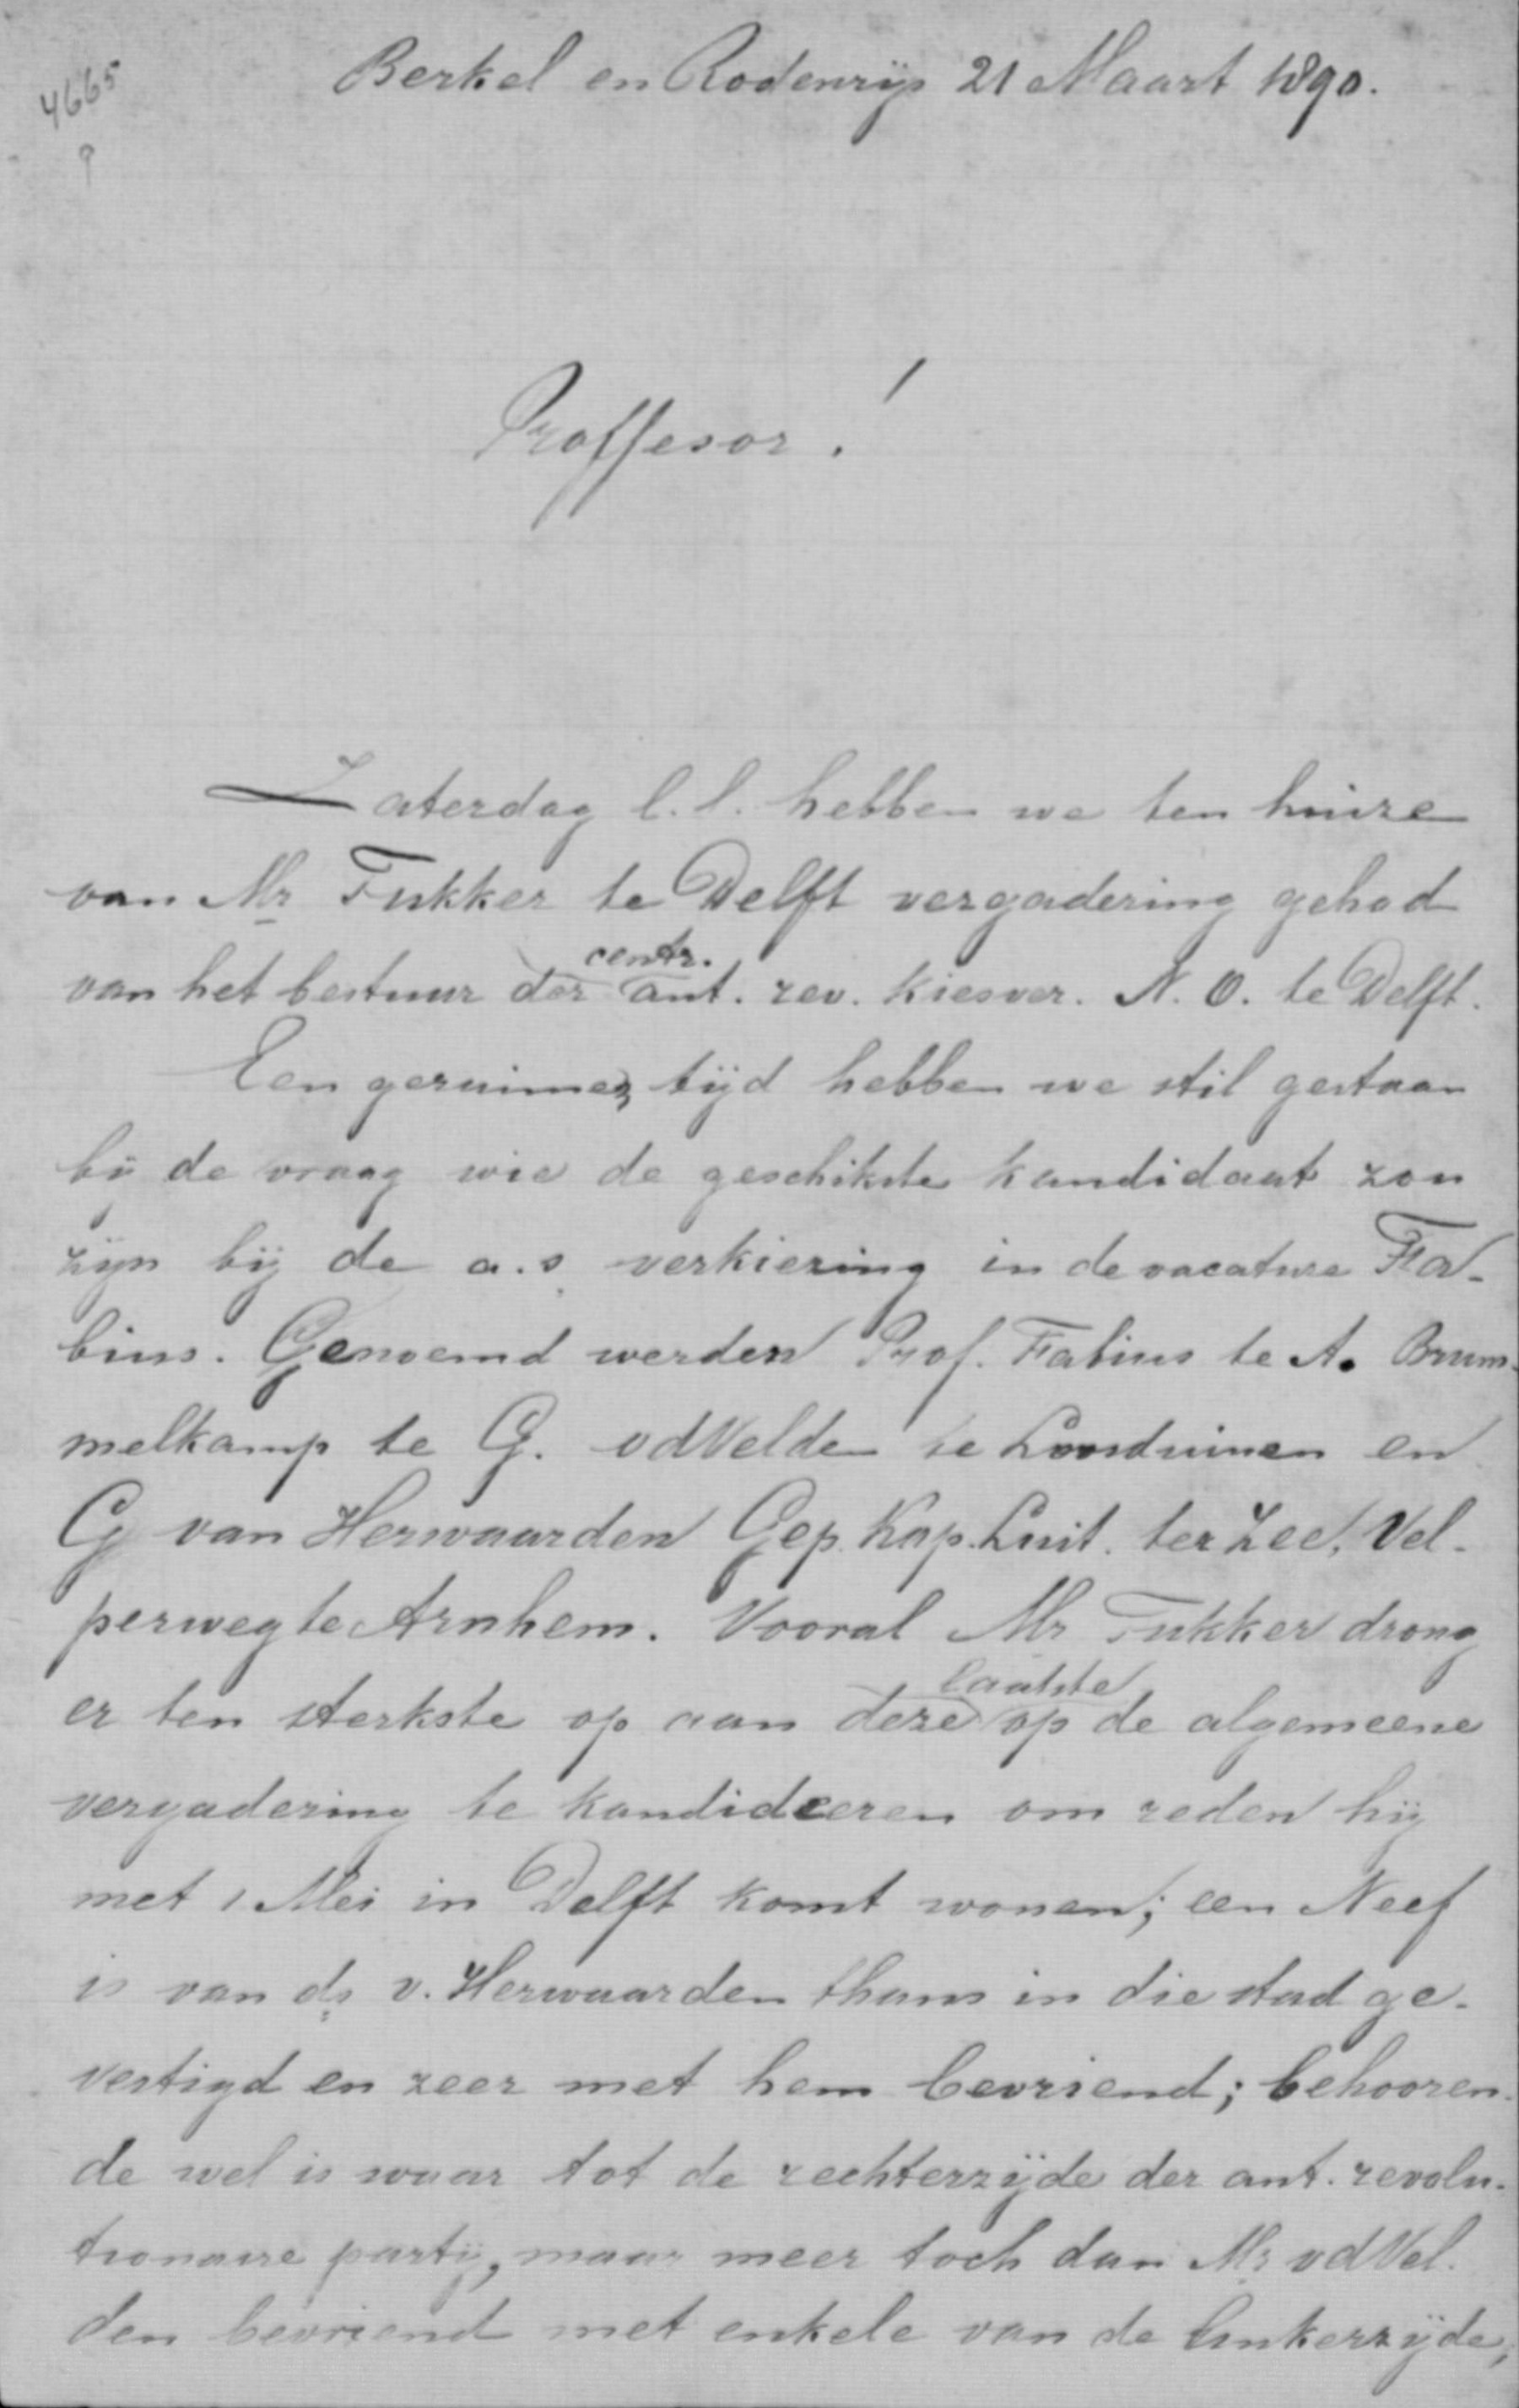 4665
Berkel en Rodenrijs 21 Maart 1890.
Proffesor!
Zaterdag l.l. hebben we ten huize
van Mr Fukker te Delft vergadering gehad
van het bestuur der centr. ant. rev. kiesver. N. O. te Delft.
Een geruimen tijd hebben we stil gestaan
bij de vraag wie de geschikste kandidaat zou
zijn bij de a.s. verkiezing in de vacature Fa-
bius. Genoemd werden Prof. Fabius te A. Brum-
melkamp te G. vdVelden te Loosduinen en
G van Herwaarden Gep. Kap. Luit. ter Zee, Vel-
perweg te Arnhem. Vooral Mr Fukker drong
er ten sterkste op aan deze laatste op de algemeene
vergadering te kandideeren om reden hij
met 1 Mei in Delft komt wonen; een Neef
is van ds v. Herwaarden thans in die stad ge-
vestigd en zeer met hem bevriend; behooren-
de wel is waar tot de rechterzijde der ant. revolu-
tionaire partij, maar meer toch dan Mr vdVel-
den bevriend met enkele van de linkerzijde,